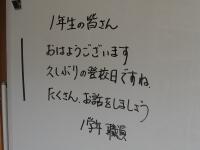 1年生の皆さん
おはようございます
久しぶりの登校日ですね。
たくさん、お話をしましょう
1学年 職員